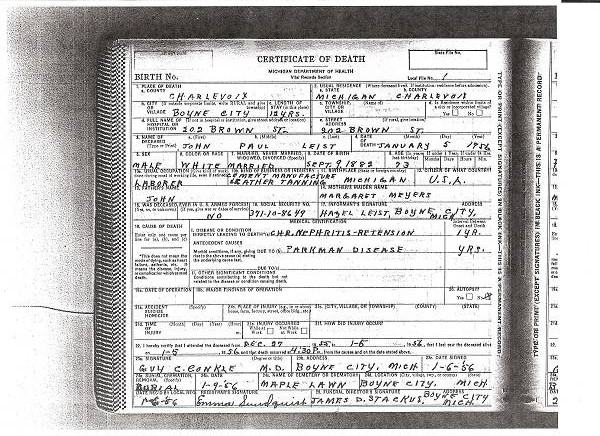 State File No.
CERTIFICATE OF DEATH
MICHIGAN DEPARTMENT OF HEALTH
Vital Records Section
BIRTH No.
Local File No. 1
1. PLACE OF DEATH
a. COUNTY
CHARLEVOIX
2. USUAL RESIDENCE (Where deceased lived. If institution: residence before admission).
a. STATE b. COUNTY
MICHIGAN CHARLEVOIX
b. CITY (If outside corporate limits, write RURAL and give township) c. LENGTH OF STAY (in this place)
OR VILLAGE BOYNE CITY 12 YRS.
c. TOWNSHIP, CITY OR VILLAGE (Name of)
BOYNE CITY
d. Is Residence within limits of a city or incorporated village?
Yes No
d. FULL NAME OF HOSPITAL OR INSTITUTION (If not in hospital or institution, give street address or location)
202 BROWN ST.
e. STREET ADDRESS (If rural, give location)
202 BROWN ST.
3. NAME OF DECEASED a. (First) b. (Middle) c. (Last)
JOHN PAUL LEIST
4. DATE OF DEATH (Month) (Day) (Year)
JANUARY 5 1956
5. SEX 6. COLOR OR RACE 7. MARRIED, NEVER MARRIED, WIDOWED, DIVORCED (Specify) 8. DATE OF BIRTH 9. AGE (In years last birthday)
MALE WHITE MARRIED SEPT. 9 1882 73
10a. USUAL OCCUPATION 10b. KIND OF BUSINESS OR INDUSTRY 11. BIRTHPLACE (State or foreign country) 12. CITIZEN OF WHAT COUNTRY?
LABORER CEMENT MANUFACTURE LEATHER TANNING MICHIGAN U.S.A.
13. FATHER'S NAME 14. MOTHER'S MAIDEN NAME
JOHN MARGARET MEYERS
15. WAS DECEASED EVER IN U.S. ARMED FORCES? 16. SOCIAL SECURITY No. 17. INFORMANT'S SIGNATURE (Address)
NO 371-10-8649 HAZEL LEIST, BOYNE CITY, MICH
MEDICAL CERTIFICATION
Interval Between Onset and Death
18. CAUSE OF DEATH
Enter only one cause per line for (a), (b), and (c)
I. DISEASE OR CONDITION DIRECTLY LEADING TO DEATH*(a) CHR. NEPHRITIS-RETENSION 1 YR.
ANTECEDENT CAUSES
Morbid conditions, if any, giving rise to the above cause (a) stating the underlying cause last.
DUE TO (b) PARKMAN DISEASE YRS.
*This does not mean the mode of dying, such as heart failure, asthenia, etc. It means the disease, injury, or complication which caused death.
DUE TO (c)
II. OTHER SIGNIFICANT CONDITIONS
Conditions contributing to the death but not related to the disease or condition causing death.
19a. DATE OF OPERATION 19b. MAJOR FINDINGS OF OPERATION
20. AUTOPSY?
Yes No
21a. ACCIDENT SUICIDE HOMICIDE (Specify)
21b. PLACE OF INJURY (e.g., in or about home, farm, factory, street, office bldg., etc.)
21c. (CITY, VILLAGE, OR TOWNSHIP) (COUNTY) (STATE)
21d. TIME OF INJURY (Month) (Day) (Year) (Hour)
21e. INJURY OCCURRED While at Work Not While at Work
21f. HOW DID INJURY OCCUR?
22. I hereby certify that I attended the deceased from DEC. 27 1955, to 1-5 1956, that I last saw the deceased alive
on 1-5 1956 and that death occurred at 4:30 P.m. from the causes and on the date stated above.
23a. SIGNATURE (Degree or title) 23b. ADDRESS 23c. DATE SIGNED
GUY C. CONKLE M.D. BOYNE CITY, MICH 1-6-56
24a. BURIAL, CREMATION, REMOVAL (Specify) 24b. DATE 24c. NAME OF CEMETERY OR CREMATORY 24d. LOCATION (City, village, twp., or county) (State)
BURIAL 1-9-56 MAPLE LAWN BOYNE CITY, MICH
DATE REC'D BY LOCAL REG. REGISTRAR'S SIGNATURE 25. FUNERAL DIRECTOR'S SIGNATURE ADDRESS
1-6-56 Emma Sundquist JAMES D. STACKUS, BOYNE CITY MICH.
TYPE OR PRINT (EXCEPT SIGNATURES) IN BLACK INK—THIS IS A PERMANENT RECORD
TYPE OR PRINT (EXCEPT SIGNATURES) IN BLACK INK—THIS IS A PERMANENT RECORD